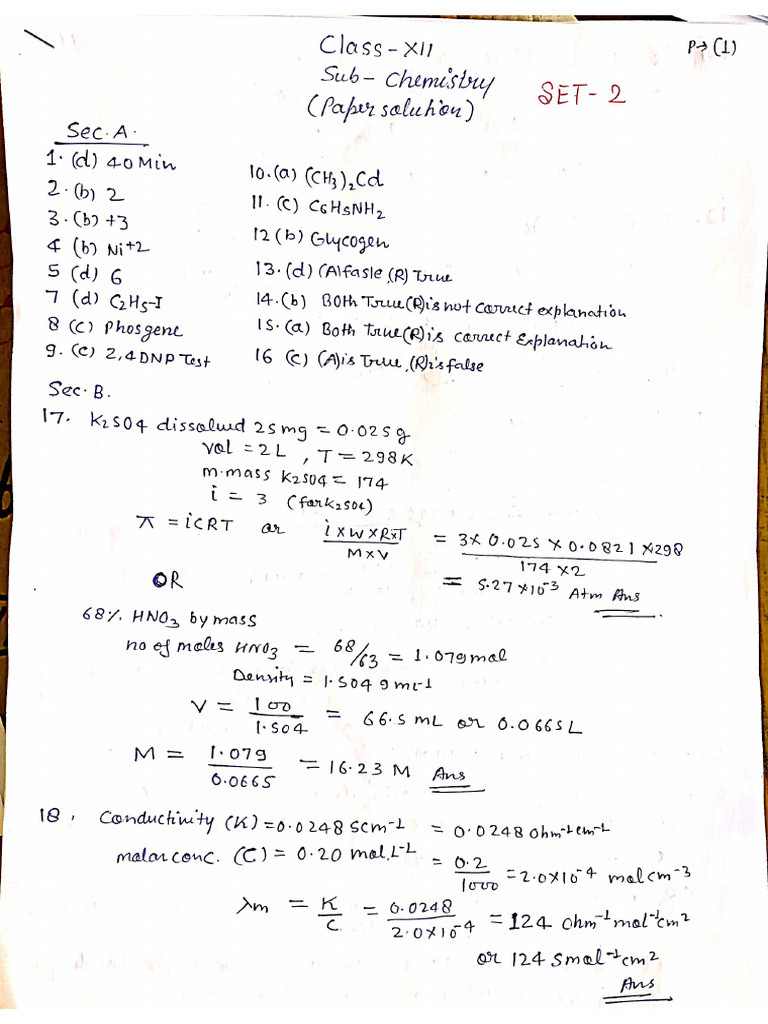 P→(1)
Class-XII
Sub- Chemistry
(Paper solution)
SET-2
Sec.A.
1. (d) 40 Min
2. (b) 2
3. (b) +3
4 (b) Ni+2
5 (d) 6
7 (d) C2H5-I
8 (c) Phosgene
9. (c) 2,4 DNP Test
10. (a) (CH3)2Cd
11. (c) C6H5NH2
12 (b) Glycogen
13. (d) (A) fasle, (R) True
14. (b) BOTH True (R) is not correct explanation
15. (a) Both true (R) is correct Explanation
16 (c) (A) is True, (R) is false
Sec. B.
17. K2SO4 dissolued 25 mg = 0.025 g
vol = 2 L , T = 298K
m.mass K2SO4 = 174
i = 3 (for K2SO4)
π = iCRT or i×W×R×T / M×V = 3×0.025×0.0821×298 / 174×2
= 5.27×10-3 Atm Ans
OR
68% HNO3 by mass
no of moles HNO3 = 68/63 = 1.079 mol
Density = 1.504 g ml-1
V = 100 / 1.504 = 66.5 mL or 0.0665 L
M = 1.079 / 0.0665 = 16.23 M Ans
18. Conductivity (K) = 0.0248 S cm-1 = 0.0248 ohm-1 cm-1
molar conc. (C) = 0.20 mol.L-1 = 0.2 / 1000 = 2.0×10-4 mol cm-3
λm = K / C = 0.0248 / 2.0×10-4 = 124 ohm-1 mol-1 cm2
or 124 S mol-1 cm2
Ans